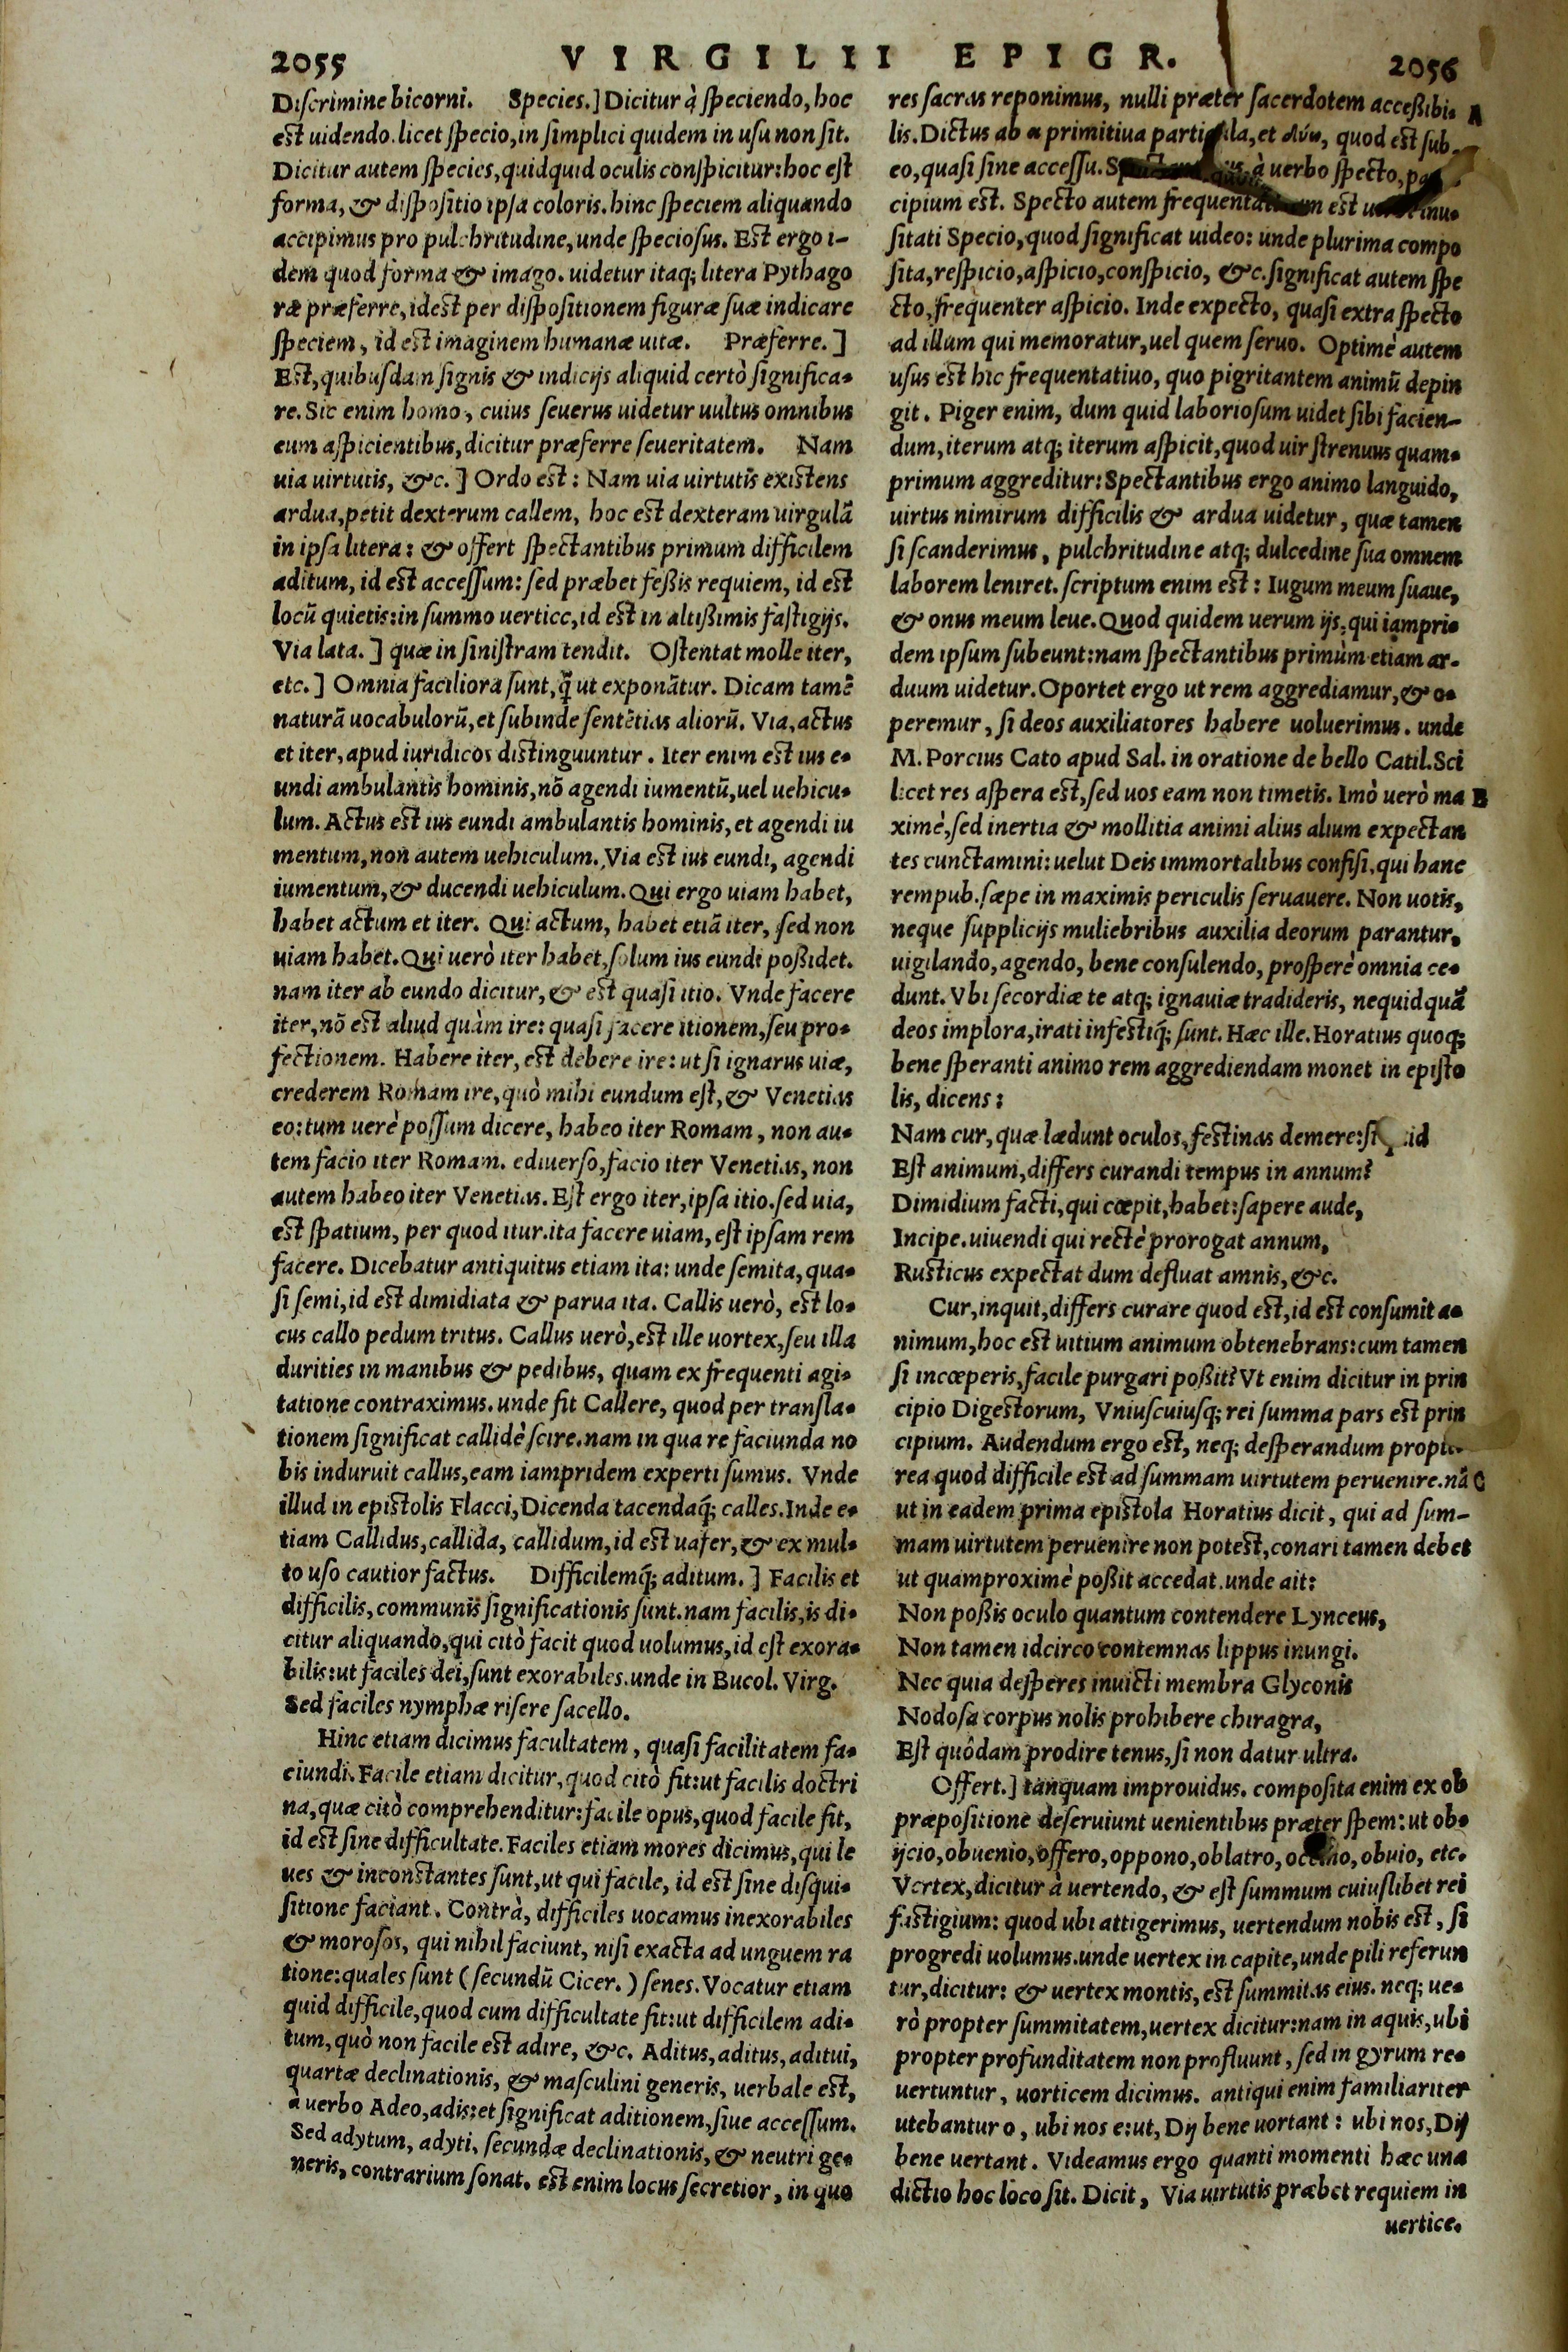 2055 VIRGILII EPIGR. 2056
Discrimine bicorni. Species.] Dicitur à speciendo, hoc
est uidendo. licet specio, in simplici quidem in usu non sit.
Dicitur autem species, quidquid oculis conspicitur: hoc est
forma, & dispositio ipsa coloris. hinc speciem aliquando
accipimus pro pulchritudine, unde speciosus. Est ergo i-
dem quod forma & imago. uidetur itaq; litera Pythago
ræ præferre, id est per dispositionem figuræ suæ indicare
speciem, id est imaginem humanæ uitæ. Præferre.]
Est, quibusdam signis & indicijs aliquid certò significa-
re. Sic enim homo, cuius seuerus uidetur uultus omnibus
eum aspicientibus, dicitur præferre seueritatem. Nam
uia uirtutis, &c.] Ordo est: Nam uia uirtutis existens
ardua, petit dexterum callem, hoc est dexteram uirgulā
in ipsa litera: & offert spectantibus primum difficilem
aditum, id est accessum: sed præbet feßis requiem, id est
locū quietis: in summo uerticc, id est in altißimis fastigijs.
Via lata.] quæ in sinistram tendit. Ostentat molle iter,
etc.] Omnia faciliora sunt, q̃ ut exponātur. Dicam tamē
naturā uocabulorū, et subinde sentētias aliorū. Via, actus
et iter, apud iuridicos distinguuntur. Iter enim est ius e-
undi ambulantis hominis, nō agendi iumentū, uel uehicu-
lum. Actus est ius eundi ambulantis hominis, et agendi iu
mentum, non autem uehiculum. Via est ius eundi, agendi
iumentum, & ducendi uehiculum. Qui ergo uiam habet,
habet actum et iter. Qui actum, habet etiā iter, sed non
uiam habet. Qui uerò iter habet, solum ius eundi poßidet.
nam iter ab eundo dicitur, & est quasi itio. Vnde facere
iter, nō est aliud quàm ire: quasi facere itionem, seu pro-
fectionem. Habere iter, est debere ire: ut si ignarus uiæ,
crederem Romam ire, quò mihi eundum est, & Venetias
eo: tum uerè possum dicere, habeo iter Romam, non au-
tem facio iter Romam. ediuerso, facio iter Venetias, non
autem habeo iter Venetias. Est ergo iter, ipsa itio. sed uia,
est spatium, per quod itur. ita facere uiam, est ipsam rem
facere. Dicebatur antiquitus etiam ita: unde semita, qua-
si semi, id est dimidiata & parua ita. Callis uerò, est lo-
cus callo pedum tritus. Callus uerò, est ille uortex, seu illa
durities in manibus & pedibus, quam ex frequenti agi-
tatione contraximus. unde fit Callere, quod per transla-
tionem significat callidè scire. nam in qua re faciunda no
bis induruit callus, eam iampridem experti sumus. Vnde
illud in epistolis Flacci, Dicenda tacendaq́; calles. Inde e-
tiam Callidus, callida, callidum, id est uafer, & ex mul-
to uso cautior factus. Difficilemq́; aditum.] Facilis et
difficilis, communis significationis sunt. nam facilis, is di-
citur aliquando, qui citò facit quod uolumus, id est exora-
bilis: ut faciles dei, sunt exorabiles. unde in Bucol. Virg.
Sed faciles nymphæ risere sacello.
Hinc etiam dicimus facultatem, quasi facilitatem fa-
ciundi. Facile etiam dicitur, quod citò fit: ut facilis doctri
na, quæ citò comprehenditur: facile opus, quod facile fit,
id est sine difficultate. Faciles etiam mores dicimus, qui le
ues & inconstantes sunt, ut qui facile, id est sine disqui-
sitione faciant. Contrà, difficiles uocamus inexorabiles
& morosos, qui nihil faciunt, nisi exacta ad unguem ra
tione: quales sunt (secundū Cicer.) senes. Vocatur etiam
quid difficile, quod cum difficultate fit: ut difficilem adi-
tum, quò non facile est adire, &c. Aditus, aditus, aditui,
quartæ declinationis, & masculini generis, uerbale est,
à uerbo Adeo, adis: et significat aditionem, siue accessum.
Sed adytum, adyti, secundæ declinationis, & neutri ge-
neris, contrarium sonat. est enim locus secretior, in quo
res sacras reponimus, nulli præter sacerdotem acceßibi- A
lis. Dictus ab α primitiua et δύω, quod est sub-
eo, quasi sine accessu. à uerbo specto,
cipium est. Specto autem est
sitati Specio, quod significat uideo: unde plurima compo
sita, respicio, aspicio, conspicio, &c. significat autem spe
cto, frequenter aspicio. Inde expecto, quasi extra specto
ad illum qui memoratur, uel quem seruo. Optimè autem
usus est hic frequentatiuo, quo pigritantem animū depin
git. Piger enim, dum quid laboriosum uidet sibi facien-
dum, iterum atq; iterum aspicit, quod uir strenuus quam-
primum aggreditur: Spectantibus ergo animo languido,
uirtus nimirum difficilis & ardua uidetur, quæ tamen
si scanderimus, pulchritudine atq; dulcedine sua omnem
laborem leniret. scriptum enim est: Iugum meum suaue,
& onus meum leue. Quod quidem uerum ijs, qui iampri-
dem ipsum subeunt: nam spectantibus primùm etiam ar-
duum uidetur. Oportet ergo ut rem aggrediamur, & o-
peremur, si deos auxiliatores habere uoluerimus. unde
M. Porcius Cato apud Sal. in oratione de bello Catil. Sci
licet res aspera est, sed uos eam non timetis. Imò uerò ma B
ximè, sed inertia & mollitia animi alius alium expectan
tes cunctamini: uelut Deis immortalibus confisi, qui hanc
rempub. sæpe in maximis periculis seruauere. Non uotis,
neque supplicijs muliebribus auxilia deorum parantur,
uigilando, agendo, bene consulendo, prosperè omnia ce-
dunt. Vbi secordiæ te atq; ignauiæ tradideris, nequidquā
deos implora, irati infestiq́; sunt. Hæc ille. Horatius quoq;
bene speranti animo rem aggrediendam monet in episto
lis, dicens:
Nam cur, quæ lædunt oculos, festinas demere: si
Est animum, differs curandi tempus in annum?
Dimidium facti, qui cœpit, habet: sapere aude,
Incipe. uiuendi qui rectè prorogat annum,
Rusticus expectat dum defluat amnis, &c.
Cur, inquit, differs curare quod est, id est consumit a-
nimum, hoc est uitium animum obtenebrans: cum tamen
si incœperis, facile purgari poßit? Vt enim dicitur in prin
cipio Digestorum, Vniuscuiusq; rei summa pars est prin
cipium. Audendum ergo est, neq; desperandum propte-
rea quod difficile est ad summam uirtutem peruenire. nā C
ut in eadem prima epistola Horatius dicit, qui ad sum-
mam uirtutem peruenire non potest, conari tamen debet
ut quamproximè poßit accedat. unde ait:
Non poßis oculo quantum contendere Lynceus,
Non tamen idcirco contemnas lippus inungi.
Nec quia desperes inuicti membra Glyconis
Nodosa corpus nolis prohibere chiragra,
Est quôdam prodire tenus, si non datur ultra.
Offert.] tanquam improuidus. composita enim ex ob
præpositione deseruiunt uenientibus præter spem: ut ob-
ijcio, obuenio, offero, oppono, oblatro, obuio, etc.
Vertex, dicitur à uertendo, & est summum cuiuslibet rei
fastigium: quod ubi attigerimus, uertendum nobis est, si
progredi uolumus. unde uertex in capite, unde pili referun
tur, dicitur: & uertex montis, est summitas eius. neq; ue-
rò propter summitatem, uertex dicitur: nam in aquis, ubi
propter profunditatem non profluunt, sed in gyrum re-
uertuntur, uorticem dicimus. antiqui enim familiariter
utebantur o, ubi nos e: ut, Dij bene uortant: ubi nos, Dij
bene uertant. Videamus ergo quanti momenti hæc una
dictio hoc loco sit. Dicit, Via uirtutis præbet requiem in
uertice.